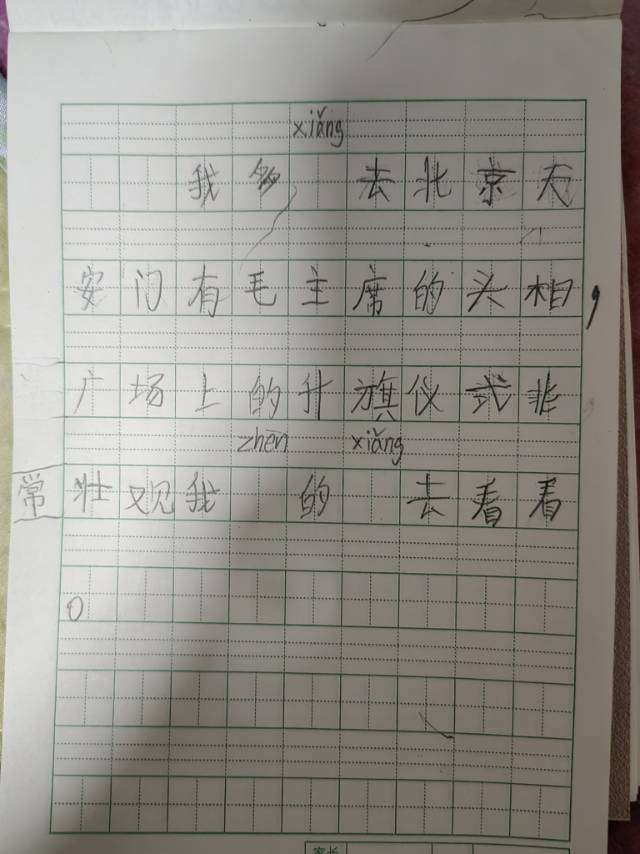 xiǎng
我多 去北京天
安门有毛主席的头相，
广场上的升旗仪式非
zhēn xiǎng
常壮观我 的 去看看
。
家长